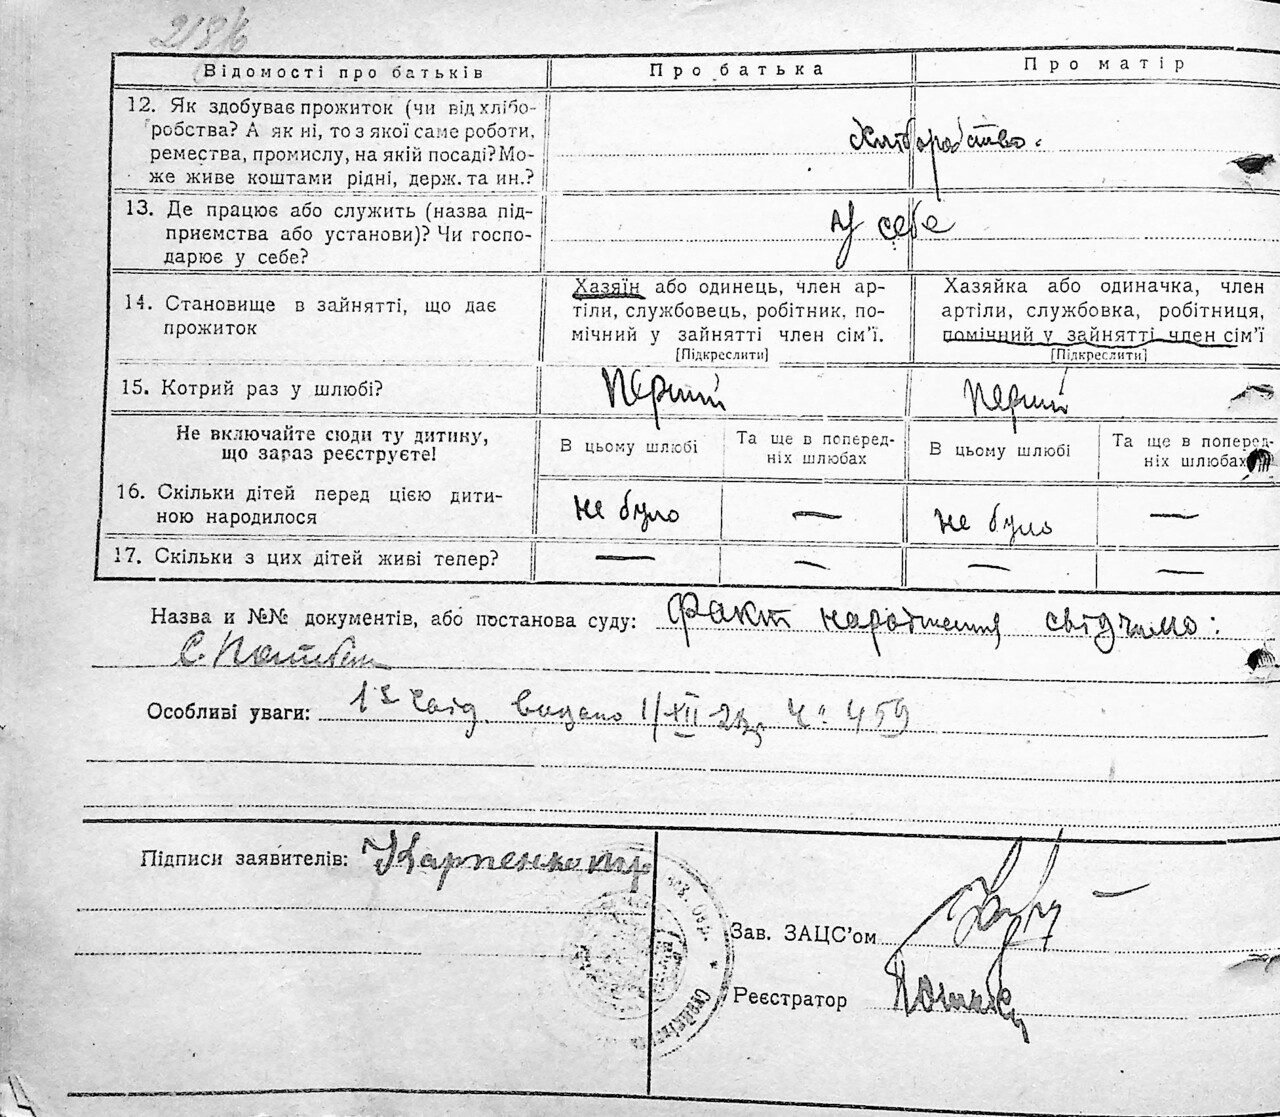 218/6
Відомості про батьків
Про батька
Про матір
12. Як здобуває прожиток (чи від хлібо-
робства? А як ні, то з якої саме роботи,
ремества, промислу, на якій посаді? Мо-
же живе коштами рідні, держ. та ин.?
Хліборобство.
13. Де працює або служить (назва під-
приємства або установи)? Чи госпо-
дарює у себе?
У себе
14. Становище в зайнятті, що дає
прожиток
Хазяїн або одинець, член ар-
тіли, службовець, робітник, по-
мічний у зайнятті член сім'ї.
[Підкреслити]
Хазяйка або одиначка, член
артіли, службовка, робітниця,
помічний у зайнятті член сім'ї
[Підкреслити]
15. Котрий раз у шлюбі?
Перший
Перший
Не включайте сюди ту дитину,
що зараз реєструєте!
В цьому шлюбі
Та ще в поперед-
ніх шлюбах
В цьому шлюбі
Та ще в поперед-
ніх шлюбах
16. Скільки дітей перед цією дити-
ною народилося
не було
—
не було
—
17. Скільки з цих дітей живі тепер?
—
—
—
—
Назва и №№ документів, або постанова суду: Факт народження свідчимо:
Особливі уваги: видано 1/XII 459
Підписи заявителів: Карпенко
Зав. ЗАЦС'ом
Реєстратор